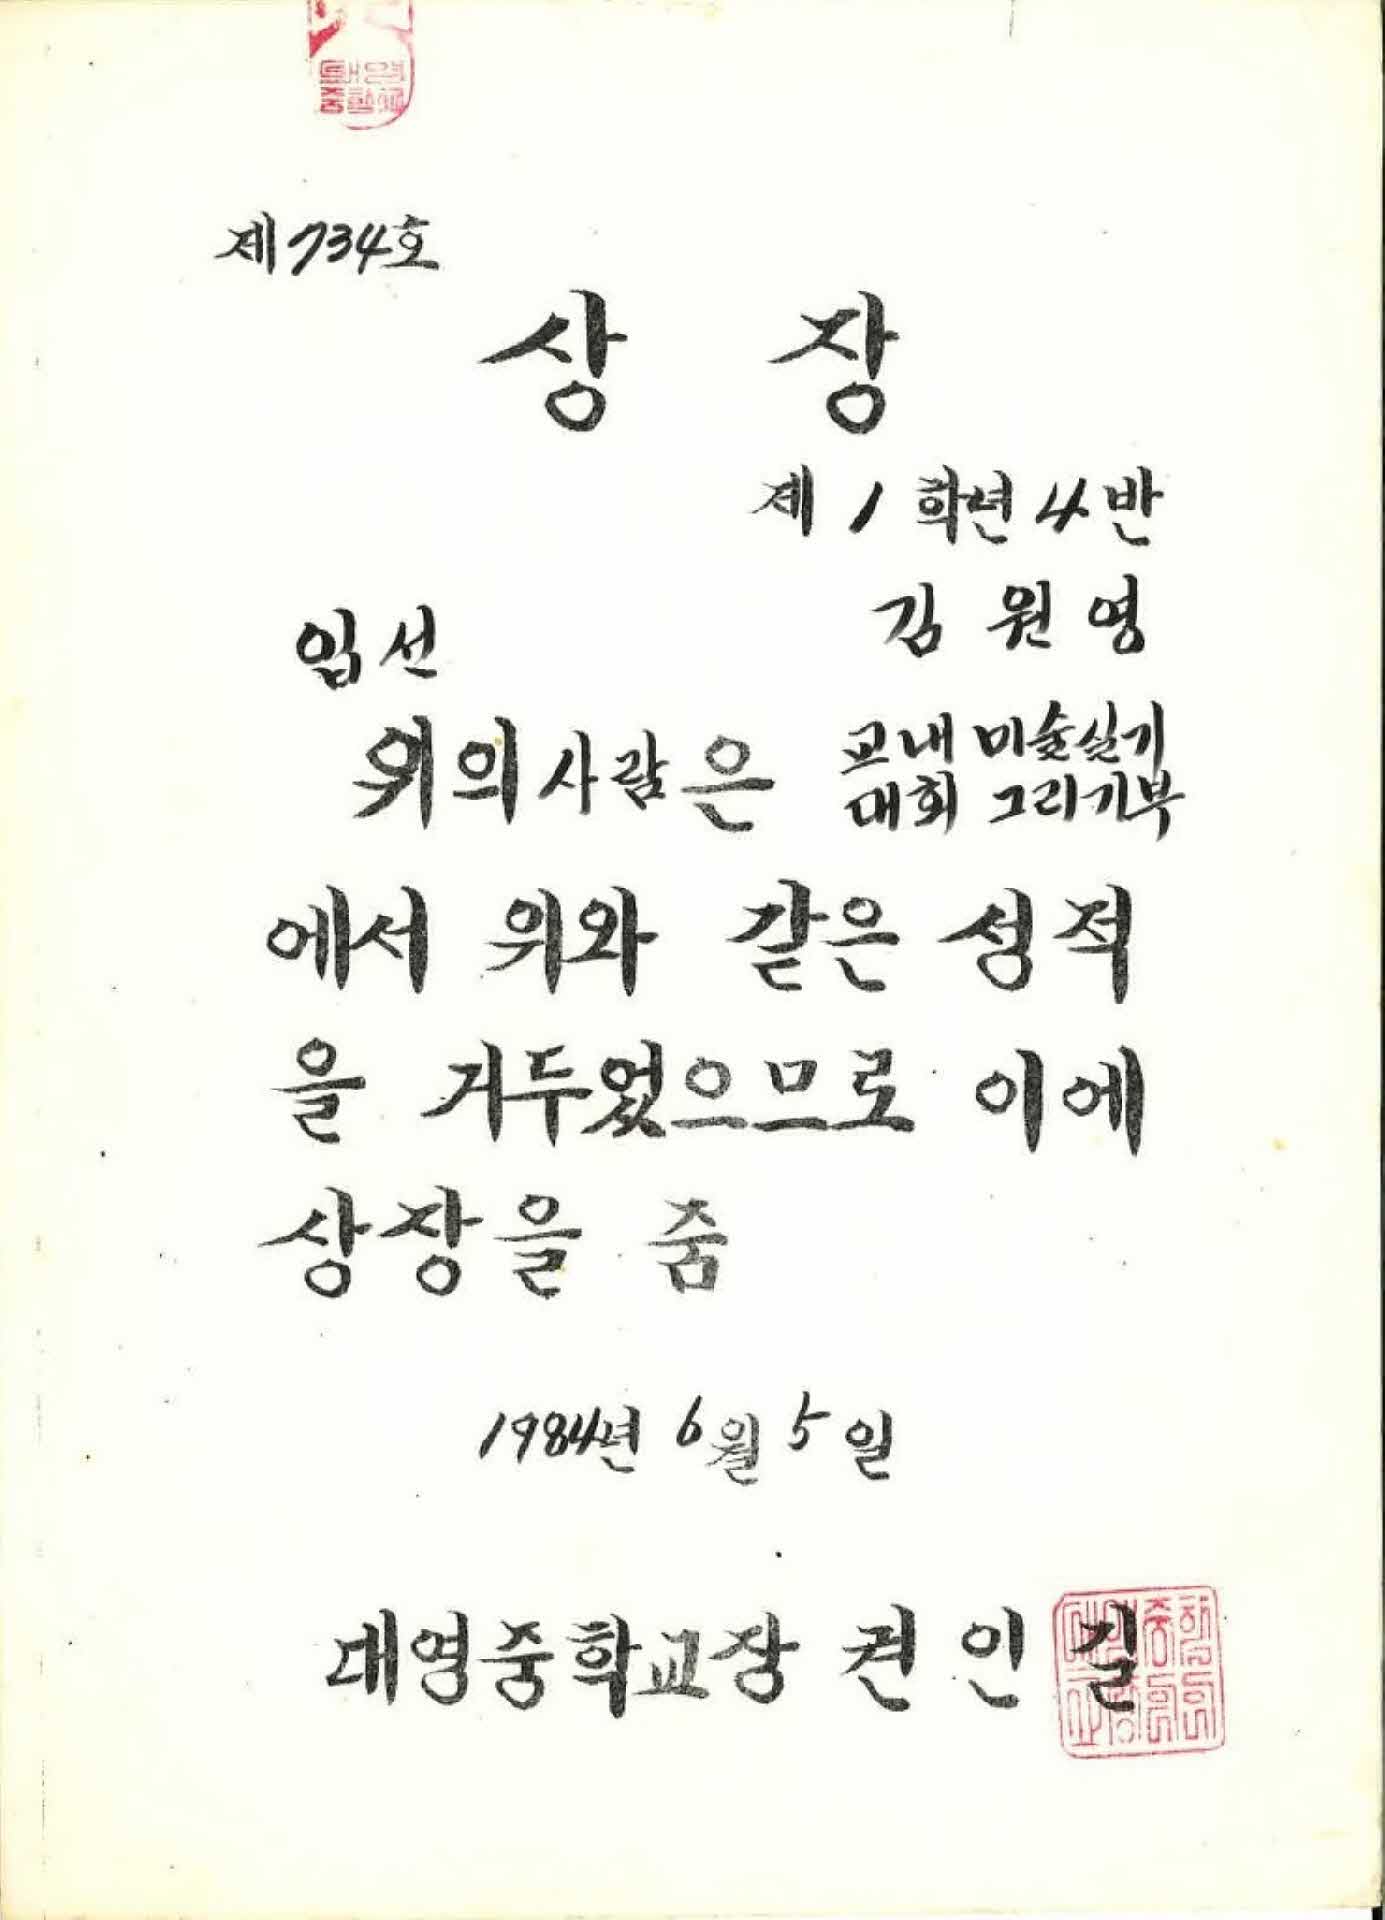 제734호
상 장
제 1 학년 4 반
김 원 영
입선
위의 사람은 교내 미술실기
대회 그리기부
에서 위와 같은 성적
을 거두었으므로 이에
상장을 줌
1984년 6월 5일
대영중학교장 권 인 길